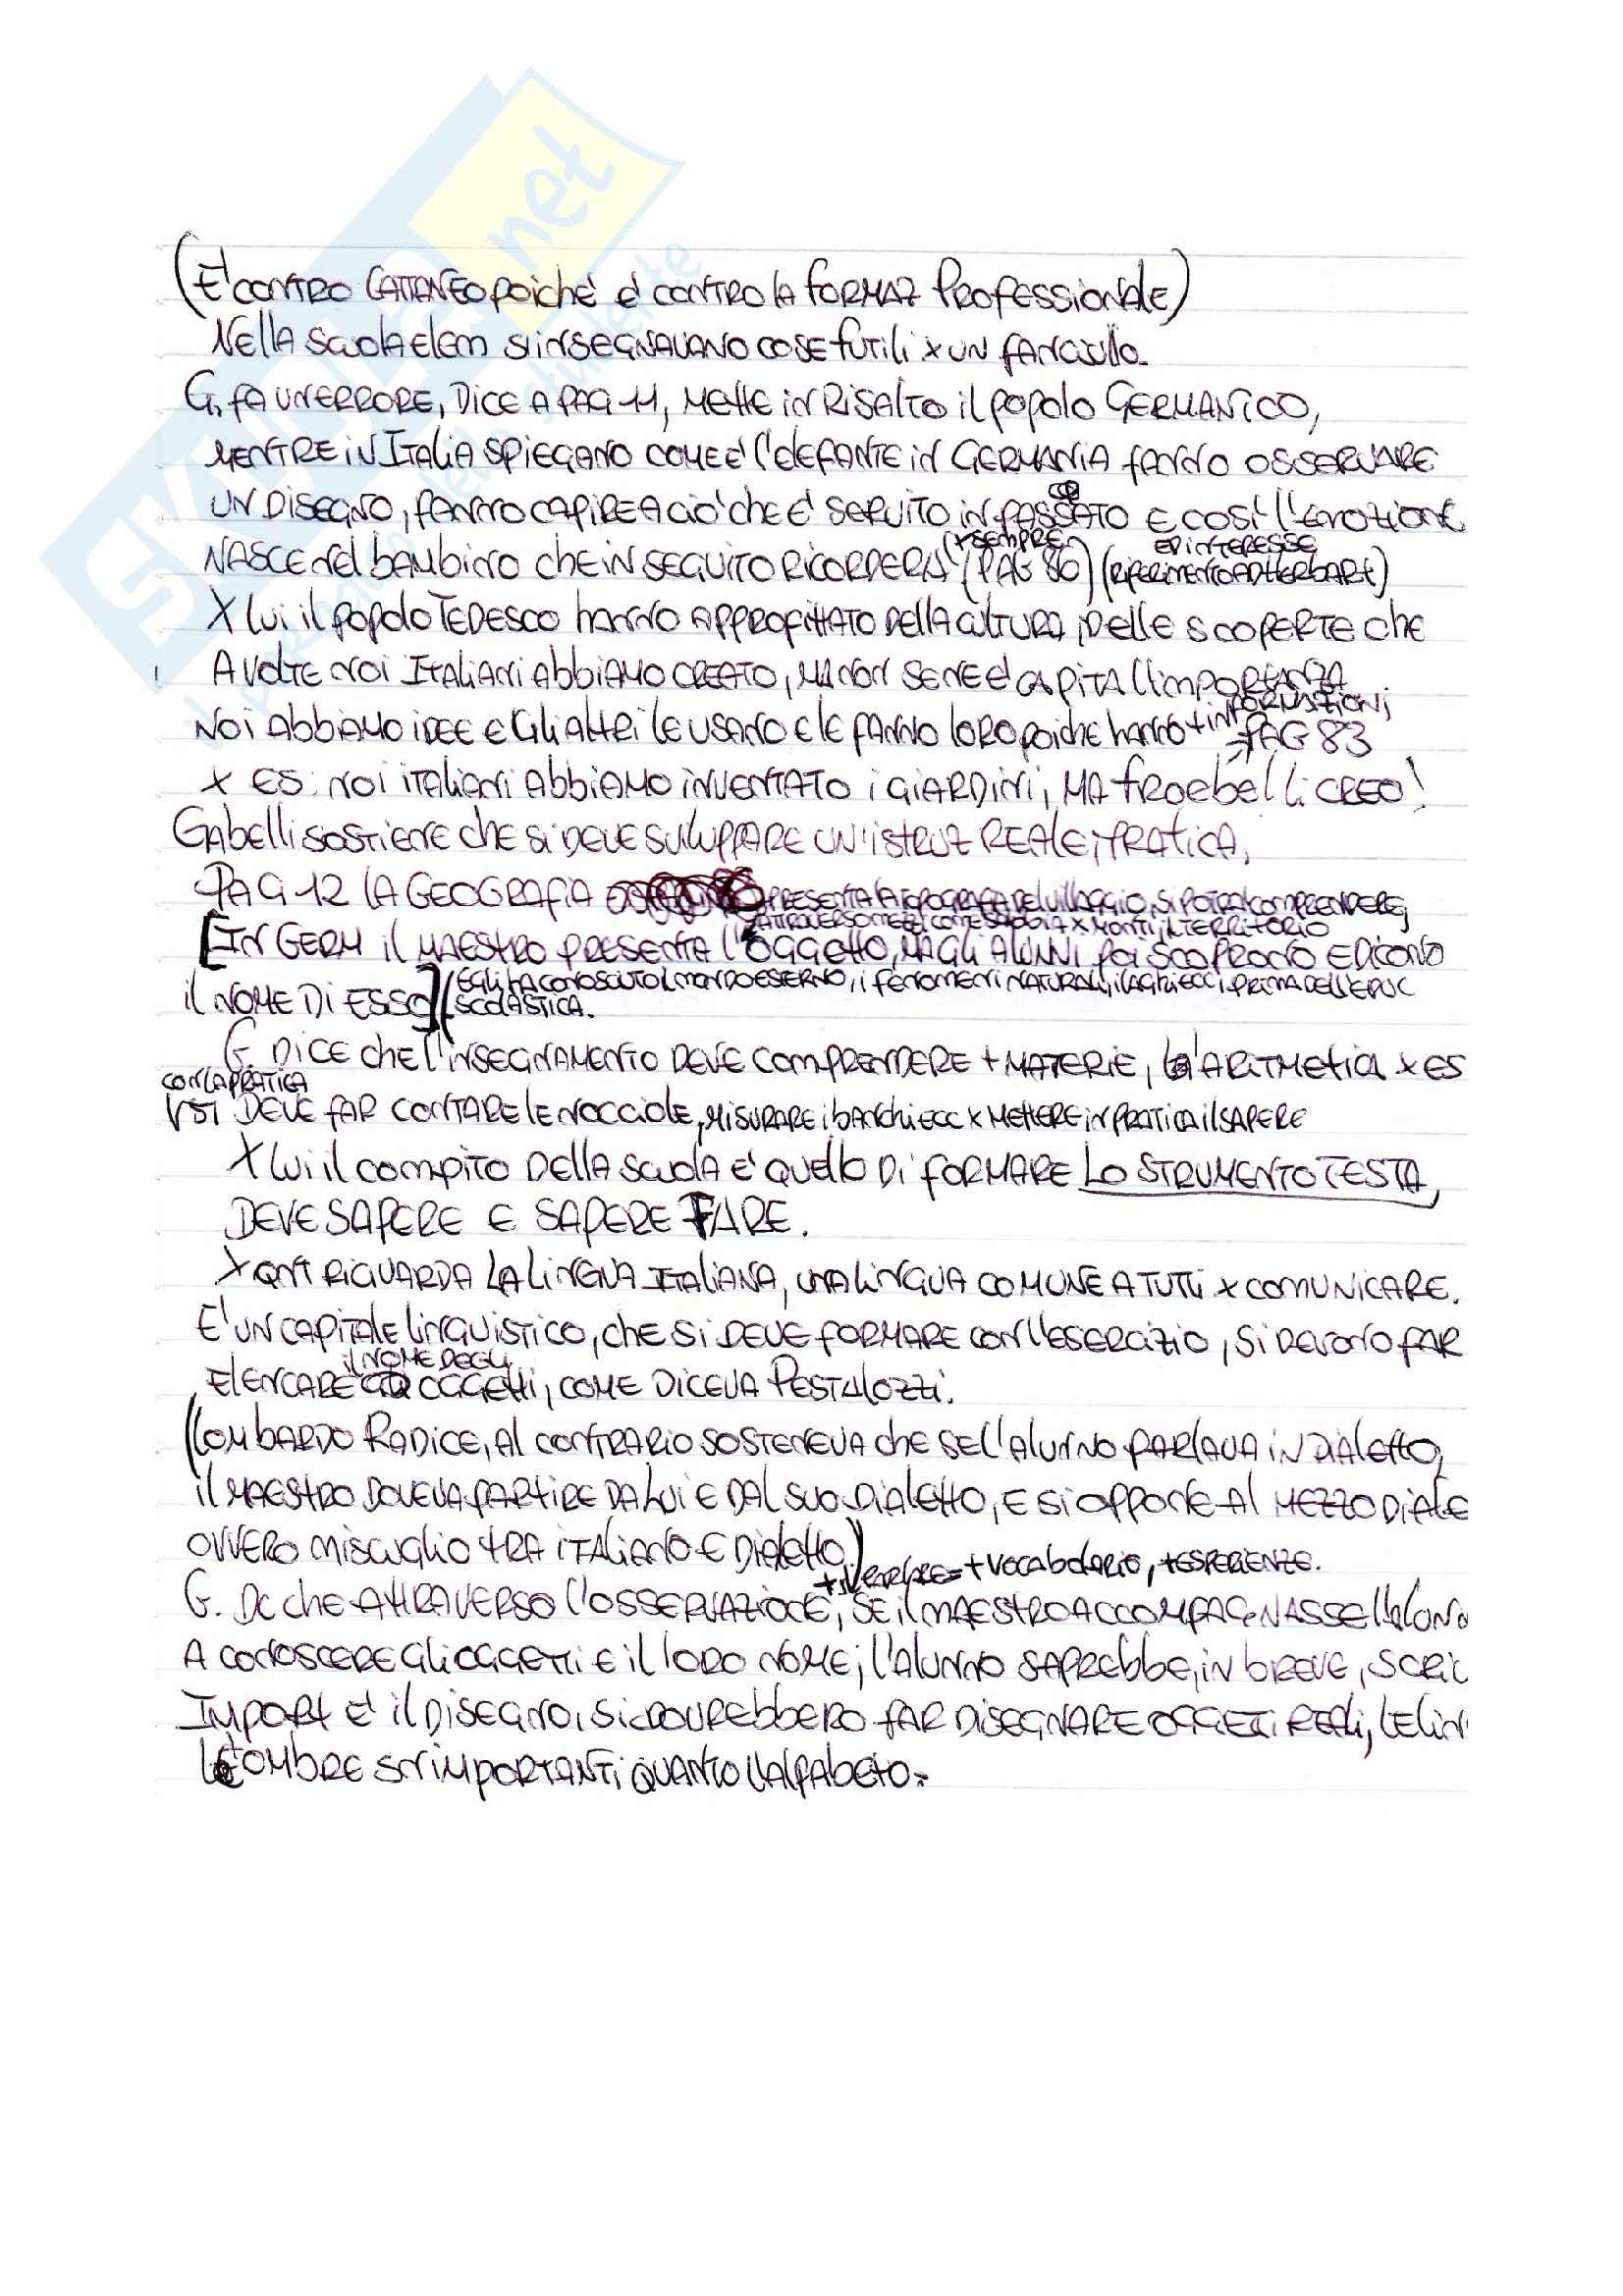 SKUOLA.net
(E' CONTRO CATTANEO poiché è CONTRO la FORMAZ PROFESSIONALE)
NELLA scuola elem SI INSEGNAVANO COSE FUTILI x UN FANCIULLO.
G. FA UN ERRORE, DICE A PAG 11, METTE IN RISALTO il popolo GERMANICO,
MENTRE IN ITALIA SPIEGANO COME E' l'ELEFANTE IN GERMANIA FANNO OSSERVARE
UN DISEGNO, FANNO CAPIRE A CIO' CHE E' SERVITO IN PASSATO E COSI' l'EMOZIONE
x SEMPRE ED INTERESSE
NASCE NEL bambino CHE IN SEGUITO RICORDERA' (PAG 86) (RIFERIMENTO AD HERBART)
X lui il popolo TEDESCO hanno APPROFITTATO DELLA CULTURA, DELLE SCOPERTE che
A VOLTE NOI ITALIANI Abbiamo CREATO, MA NON SE NE E' CAPITA l'IMPORTANZA
NOI Abbiamo IDEE E GLI ALTRI LE USANO E LE FANNO loro poiche hanno + INFORMAZIONI
→ PAG 83
x ES: NOI ITALIANI Abbiamo INVENTATO i GIARDINI, MA froebel li CREO!
GABELLI SOSTIENE CHE SI DEVE SVILUPPARE UN'ISTRUZ REALE, PRATICA,
PAG 12 LA GEOGRAFIA PRESENTA LA TOPOGRAFIA DEL VILLAGGIO, SI POTRA' COMPRENDERE,
ATTRAVERSO MEZZI COME SABBIA x MONTI, IL TERRITORIO
[IN GERM il MAESTRO PRESENTA l'OGGETTO, MA GLI ALUNNI poi SCOPRONO E DICONO
il NOME DI ESSO] (EGLI HA CONOSCIUTO IL MONDO ESTERNO, i FENOMENI NATURALI, i LAGHI ECC, PRIMA DELL'EDUC
SCOLASTICA.
G. DICE che l'INSEGNAMENTO DEVE COMPRENDERE + MATERIE, l'ARITMETICA x ES
CON LA PRATICA
SI DEVE FAR CONTARE le NOCCIOLE, MISURARE i BANCHI ECC x METTERE IN PRATICA IL SAPERE
X lui il compito DELLA SCUOLA E' QUELLO DI FORMARE LO STRUMENTO TESTA,
DEVE SAPERE E SAPERE FARE.
X QNT RIGUARDA LA LINGUA ITALIANA, UNA LINGUA COMUNE A TUTTI x COMUNICARE.
E' UN CAPITALE LINGUISTICO, CHE SI DEVE FORMARE CON l'ESERCIZIO, SI DEVONO FAR
il NOME DEGLI
ELENCARE OGGETTI, COME DICEVA PESTALOZZI.
(LOMBARDO RADICE, AL CONTRARIO SOSTENEVA che SE l'ALUNNO PARLAVA IN DIALETTO,
il MAESTRO DOVEVA PARTIRE DA LUI E DAL SUO DIALETTO, E SI OPPONE AL MEZZO DIALE
OVVERO MISCUGLIO TRA ITALIANO E DIALETTO)
= + VOCABOLARIO, + ESPERIENZE.
G. DC che ATTRAVERSO l'OSSERVAZIONE, SE il MAESTRO ACCOMPAGNASSE l'ALUNN
A CONOSCERE GLI OGGETTI E il loro NOME, l'ALUNNO SAPREBBE, IN BREVE, SCRIV
IMPORT E' il DISEGNO, SI DOVREBBERO FAR DISEGNARE OGGETTI REALI, LE LIN
LE OMBRE SN IMPORTANTI QUANTO l'ALFABETO.